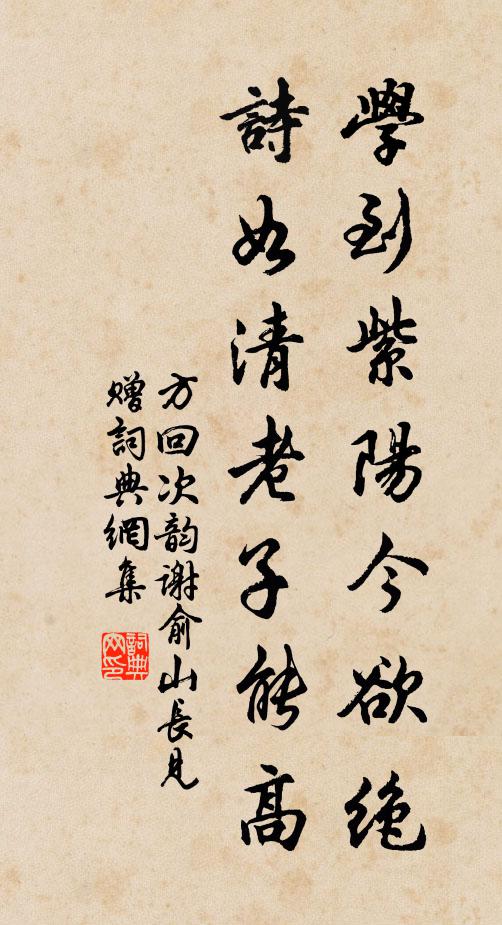 學到紫陽今欲絶
詩如清老子能高
方回次韵謝俞山長見
贈詞典網集
詞典
网印